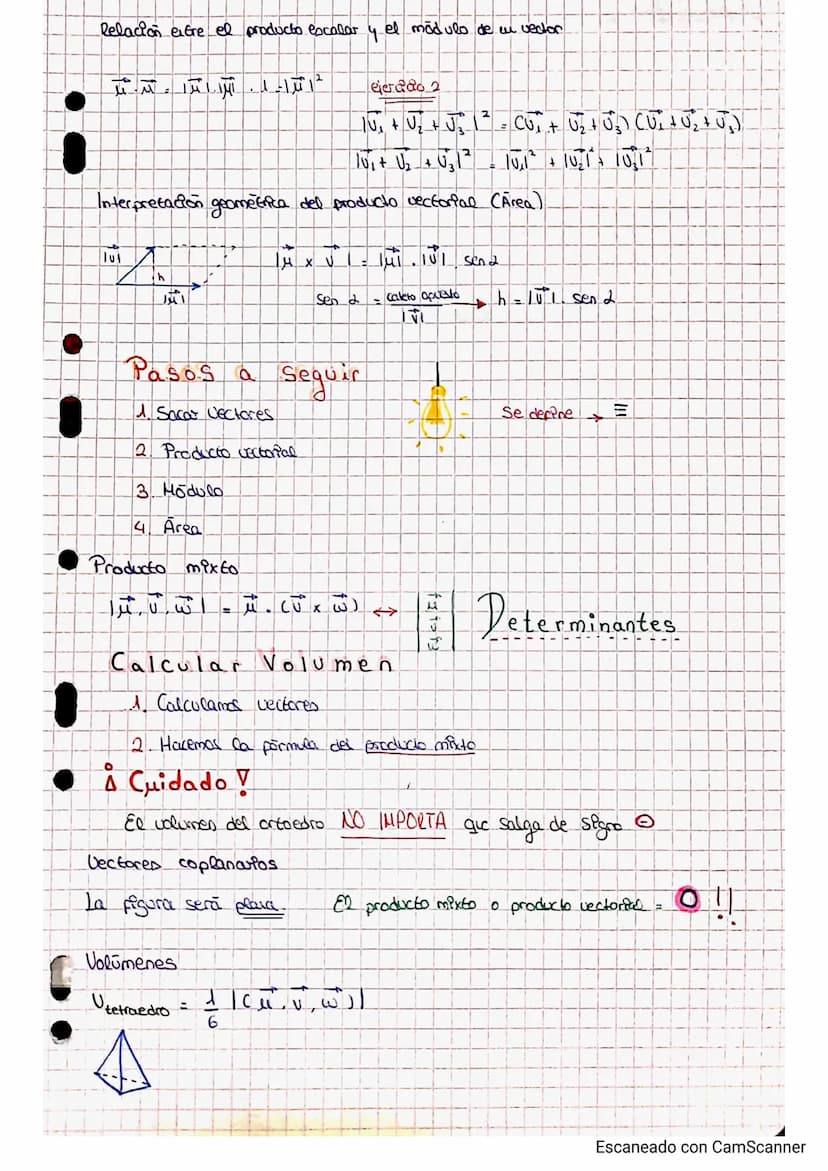 Relación entre el producto escalar y el módulo de un vector
μ⃗ · μ⃗ = |μ⃗| . |μ⃗| . 1 = |μ⃗|²
ejercicio 2
|v⃗₁ + v⃗₂ + v⃗₃|² = (v⃗₁ + v⃗₂ + v⃗₃) (v⃗₁ + v⃗₂ + v⃗₃)
|v⃗₁ + v⃗₂ + v⃗₃|² = |v⃗₁|² + |v⃗₂|² + |v⃗₃|²
Interpretación geométrica del producto vectorial (Área)
|v⃗|
h
|μ⃗|
|μ⃗ x v⃗| = |μ⃗| . |v⃗| . sen α
sen α = cateto opuesto / |v⃗| → h = |v⃗| . sen α
Pasos a seguir
1. Sacar vectores
2. Producto vectorial
3. Módulo
4. Área
Se define → ≡
Producto mixto
|μ⃗, v⃗, w⃗| = μ⃗ . (v⃗ x w⃗) ↔ |μ⃗ v⃗ w⃗| Determinantes
Calcular Volumen
1. Calculamos vectores
2. Hacemos la fórmula del producto mixto
¡Cuidado!
El volumen del ortoedro NO IMPORTA que salga de signo ⊖
Vectores coplanarios
La figura será plana. El producto mixto o producto vectorial = 0 !!
Volúmenes
V tetraedro = 1/6 |(μ⃗, v⃗, w⃗)|
Escaneado con CamScanner